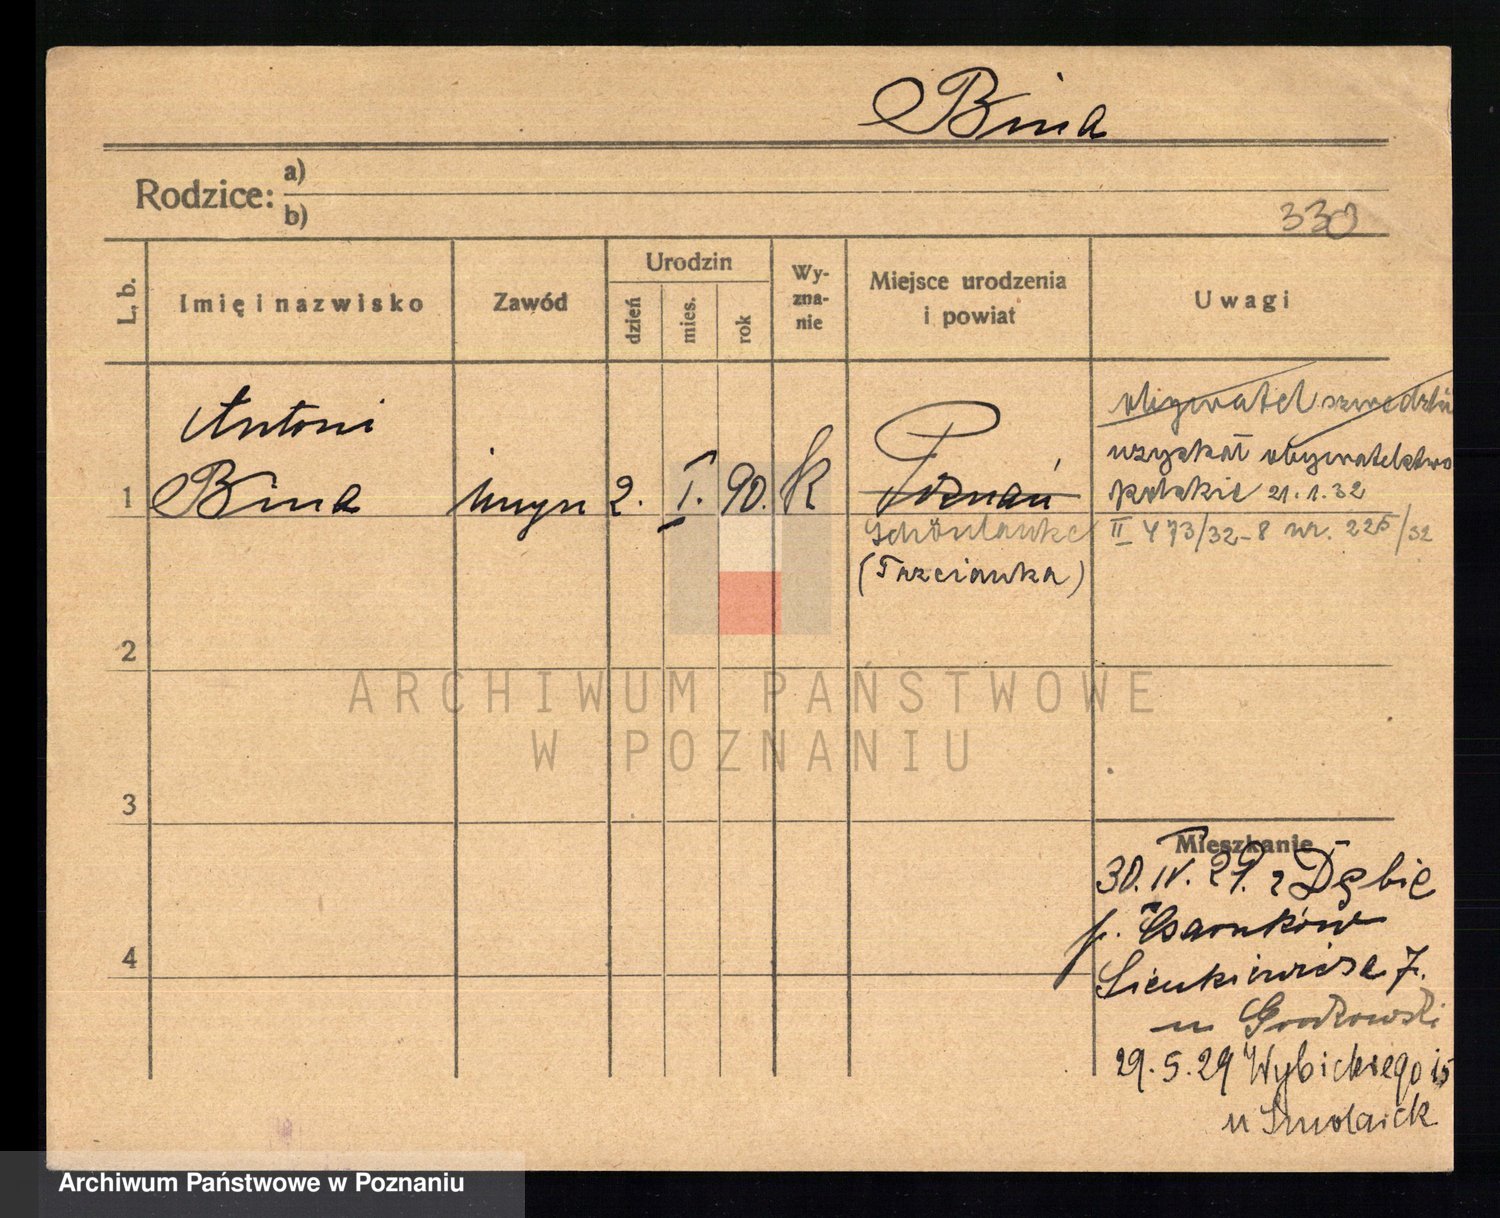 Bina
Rodzice: a)
b)
330
L. b. Imię i nazwisko Zawód Urodzin dzień mies. rok Wy-zna-nie Miejsce urodzenia i powiat Uwagi
Antoni
1 Bina 2. I. 90. k Poznań
Schönlanke
(Trzcianka)
obywatel szwedzki
uzyskał obywatelstwo
polskie 21.1.32
II 473/32-8 nr. 225/32
2
ARCHIWUM PAŃSTWOWE
W POZNANIU
3
4
Mieszkanie
30. IV. 29. z Dębie
p. Czarnków
Sienkiewicza 7.
u Grodkowski
29.5.29 Wybickiego 15
u
Archiwum Państwowe w Poznaniu